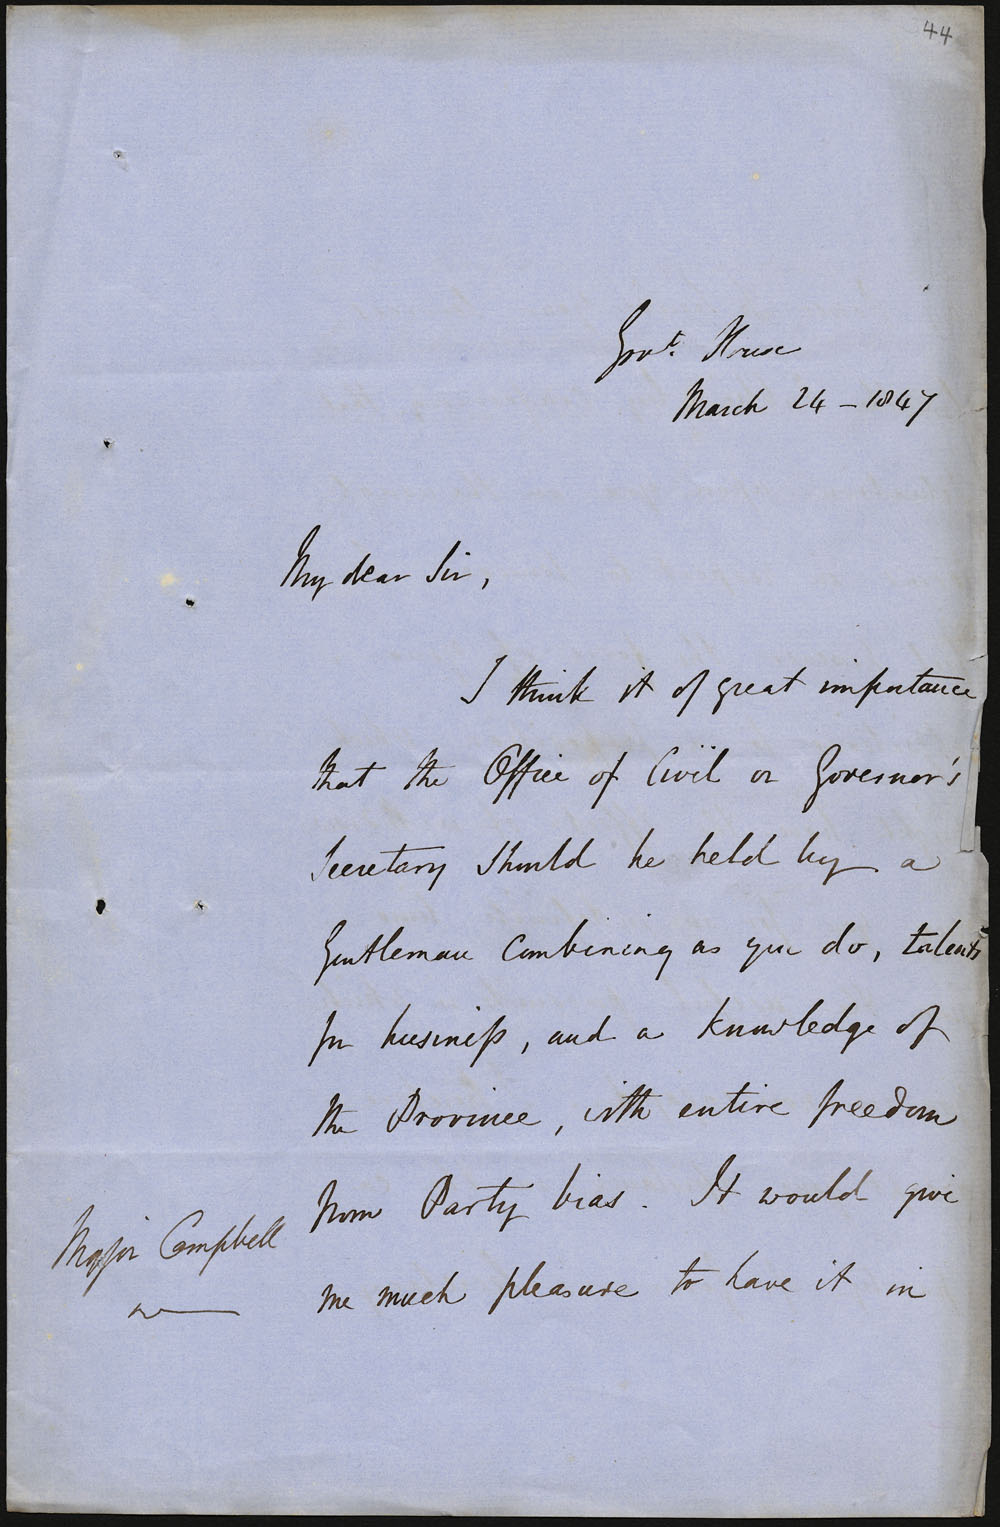 44
Govt. House
March 24 - 1847
My dear Sir,
I think it of great importance
that the Office of Civil or Governor's
Secretary should be held by a
Gentleman combining as you do, talents
for business, and a knowledge of
the Province, with entire freedom
from Party bias. It would give
me much pleasure to have it in
Major Campbell